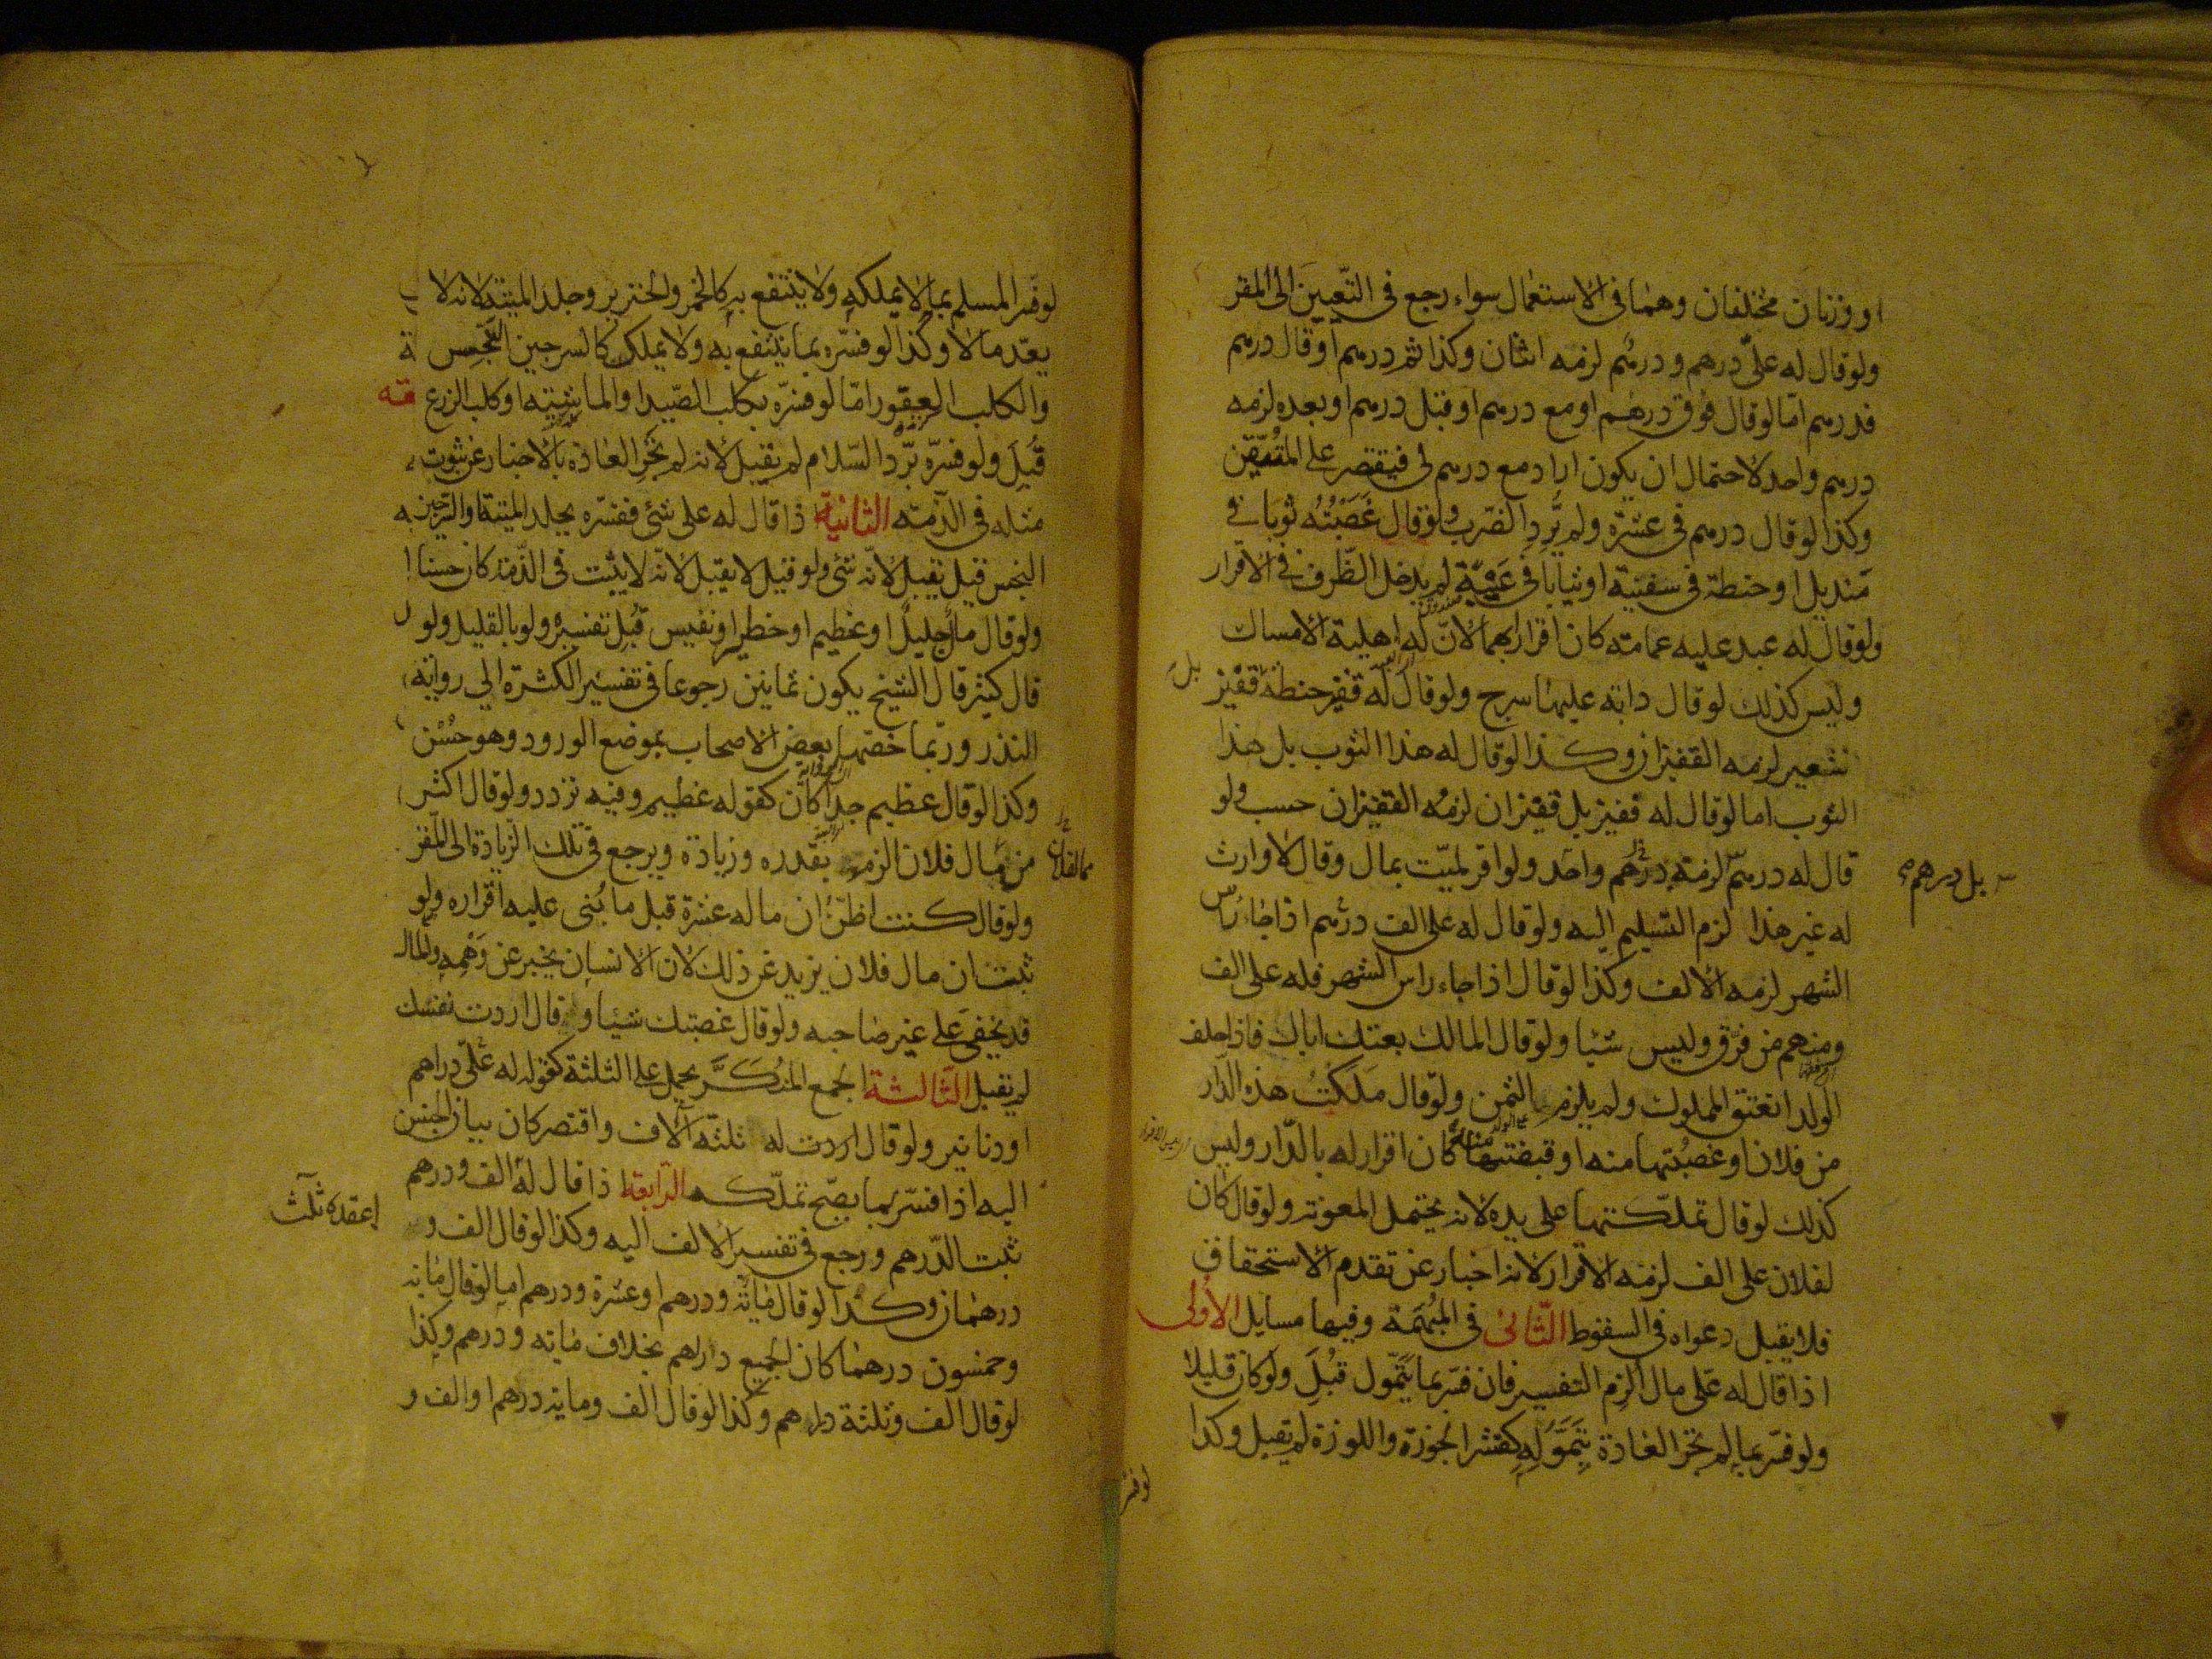 او وزنان مختلفان وهما فى الاستعمال سواء رجع فى التعيين الى المقر
ولو قال له علىّ درهم ودرهم لزمه اثنان وكذا ثم درهم او قال درهم
فدرهم امّا لو قال فوق درهم او مع درهم او قبل درهم او بعده لزمه
درهم واحد لاحتمال ان يكون اراد مع درهم لى فيقتصر على المتيقّن
وكذا لو قال درهم فى عشرة ولم يُرِدِ الضرب ولو قال غَصَبْتُه ثوبا فى
منديل او حنطة فى سفينة او ثيابا فى عَيْبَة لم يدخل الظّرف فى الاقرار
ولو قال له عبد عليه عمامته كان اقرارا بهما لانّ له اهلية الامساك
وليس كذلك لو قال دابة عليها سرج ولو قال له قفيز حنطة قفيز
بل
شعير لزمه القفيزان وكذا لو قال له هذا الثوب بل هذا
الثوب اما لو قال له قفيز بل قفيزان لزمه القفيزان حسب ولو
قال له درهم لزمه درهم واحد ولو اقر لميّت بمال وقال لا وارث
بل درهم
له غير هذا لزم التسليم اليه ولو قال له على الف درهم اذا جاء راس
الشهر لزمه الالف وكذا لو قال اذا جاء راس الشهر فله على الف
ومنهم من فرّق وليس شيئا ولو قال المالك بعتك اباك فاذا حلف
الولد انعتق المملوك ولم يلزم الثمن ولو قال مَلَكْتُ هذه الدار
من فلان او غصبتها منه او قبضتها منه كان اقرار له بالدّار وليس
كذلك لو قال تملّكتها على يده لانه يحتمل المعونة ولو قال كان
لفلان على الف لزمه الاقرار لانه اخبار عن تقدم الاستحقاق
فلا يقبل دعواه فى السقوط الثّانى فى المُبْهَمَة وفيها مسايل الاولى
اذا قال له علىّ مال اُلزم التفسير فان فسّر بما يُتَمَّول قُبِلَ ولو كان قليلا
ولو فسّر بما لم تجر العادة بِتَمَوُّلِهِ كقشر الجوزة واللوزة لم يقبل وكذا
لو فسر
لو فسّر المسلم بما لا يملكه ولا ينتفع به كالخمر والخنزير وجلد الميتة لانه لا
يعدّ مالا وكذا لو فسّره بما ينتفع به ولا يملك كالسرجين النّجس
والكلب العقور امّا لو فسّره بكلب الصّيد او الماشية او كلب الزرع
قُبِلَ ولو فسرّه بردّ السّلام لم يقبل لانه لم تجر العادة بالاخبار عن ثبوت
مثله فى الذّمة الثانية اذا قال له على شئ ففسّره بجلد الميتة او السّرجين
النجس قيل يقبل لانّه شئ ولو قيل لا يقبل لانّه لا يثبت فى الذّمة كان حسنا
ولو قال مال جليل او عظيم او خطير او نفيس قُبِل تفسيره ولو بالقليل ولو
قال كثير قال الشيخ يكون ثمانين رجوعا فى تفسير الكثرة الى رواية
النذر وربّما خصّها بعض الاصحاب بموضع الورود وهو حُسْن
وكذا لو قال عظيم جدا كان كقوله عظيم وفيه تردد ولو قال اكثر
من مال فلان الزم بقدره وزيادة ويرجع فى تلك الزّيادة الى المقر
ولو قال كنت اظنّ ان ماله عشرة قبل ما بُنى عليه اقراره ولو
ثبت ان مال فلان يزيد عن ذلك لان الانسان يخبر عن وَهْمِه والمال
قد يخفى على غير صاحبه ولو قال غصبتك شيئا وقال اردت نفسك
لم يقبل الثّالثة الجمع المنكَّر يحمل على الثلثة كقوله له علىّ دراهم
او دنانير ولو قال اردت له ثلثة آلاف واقتصر كان بيان الجنس
اليه اذا فسّر بما يصّح تملّكه الرّابعة اذا قال له الف ودرهم
ثبت الدّرهم ورجع فى تفسير الالف اليه وكذا لو قال الف و
درهمان وكذا لو قال مائة ودرهم او عشرة ودرهم اما لو قال مائة
وخمسون درهما كان الجميع دراهم بخلاف ماية ودرهم وكذا
لو قال الف وثلثة دراهم وكذا لو قال الف وماية درهم او الف و